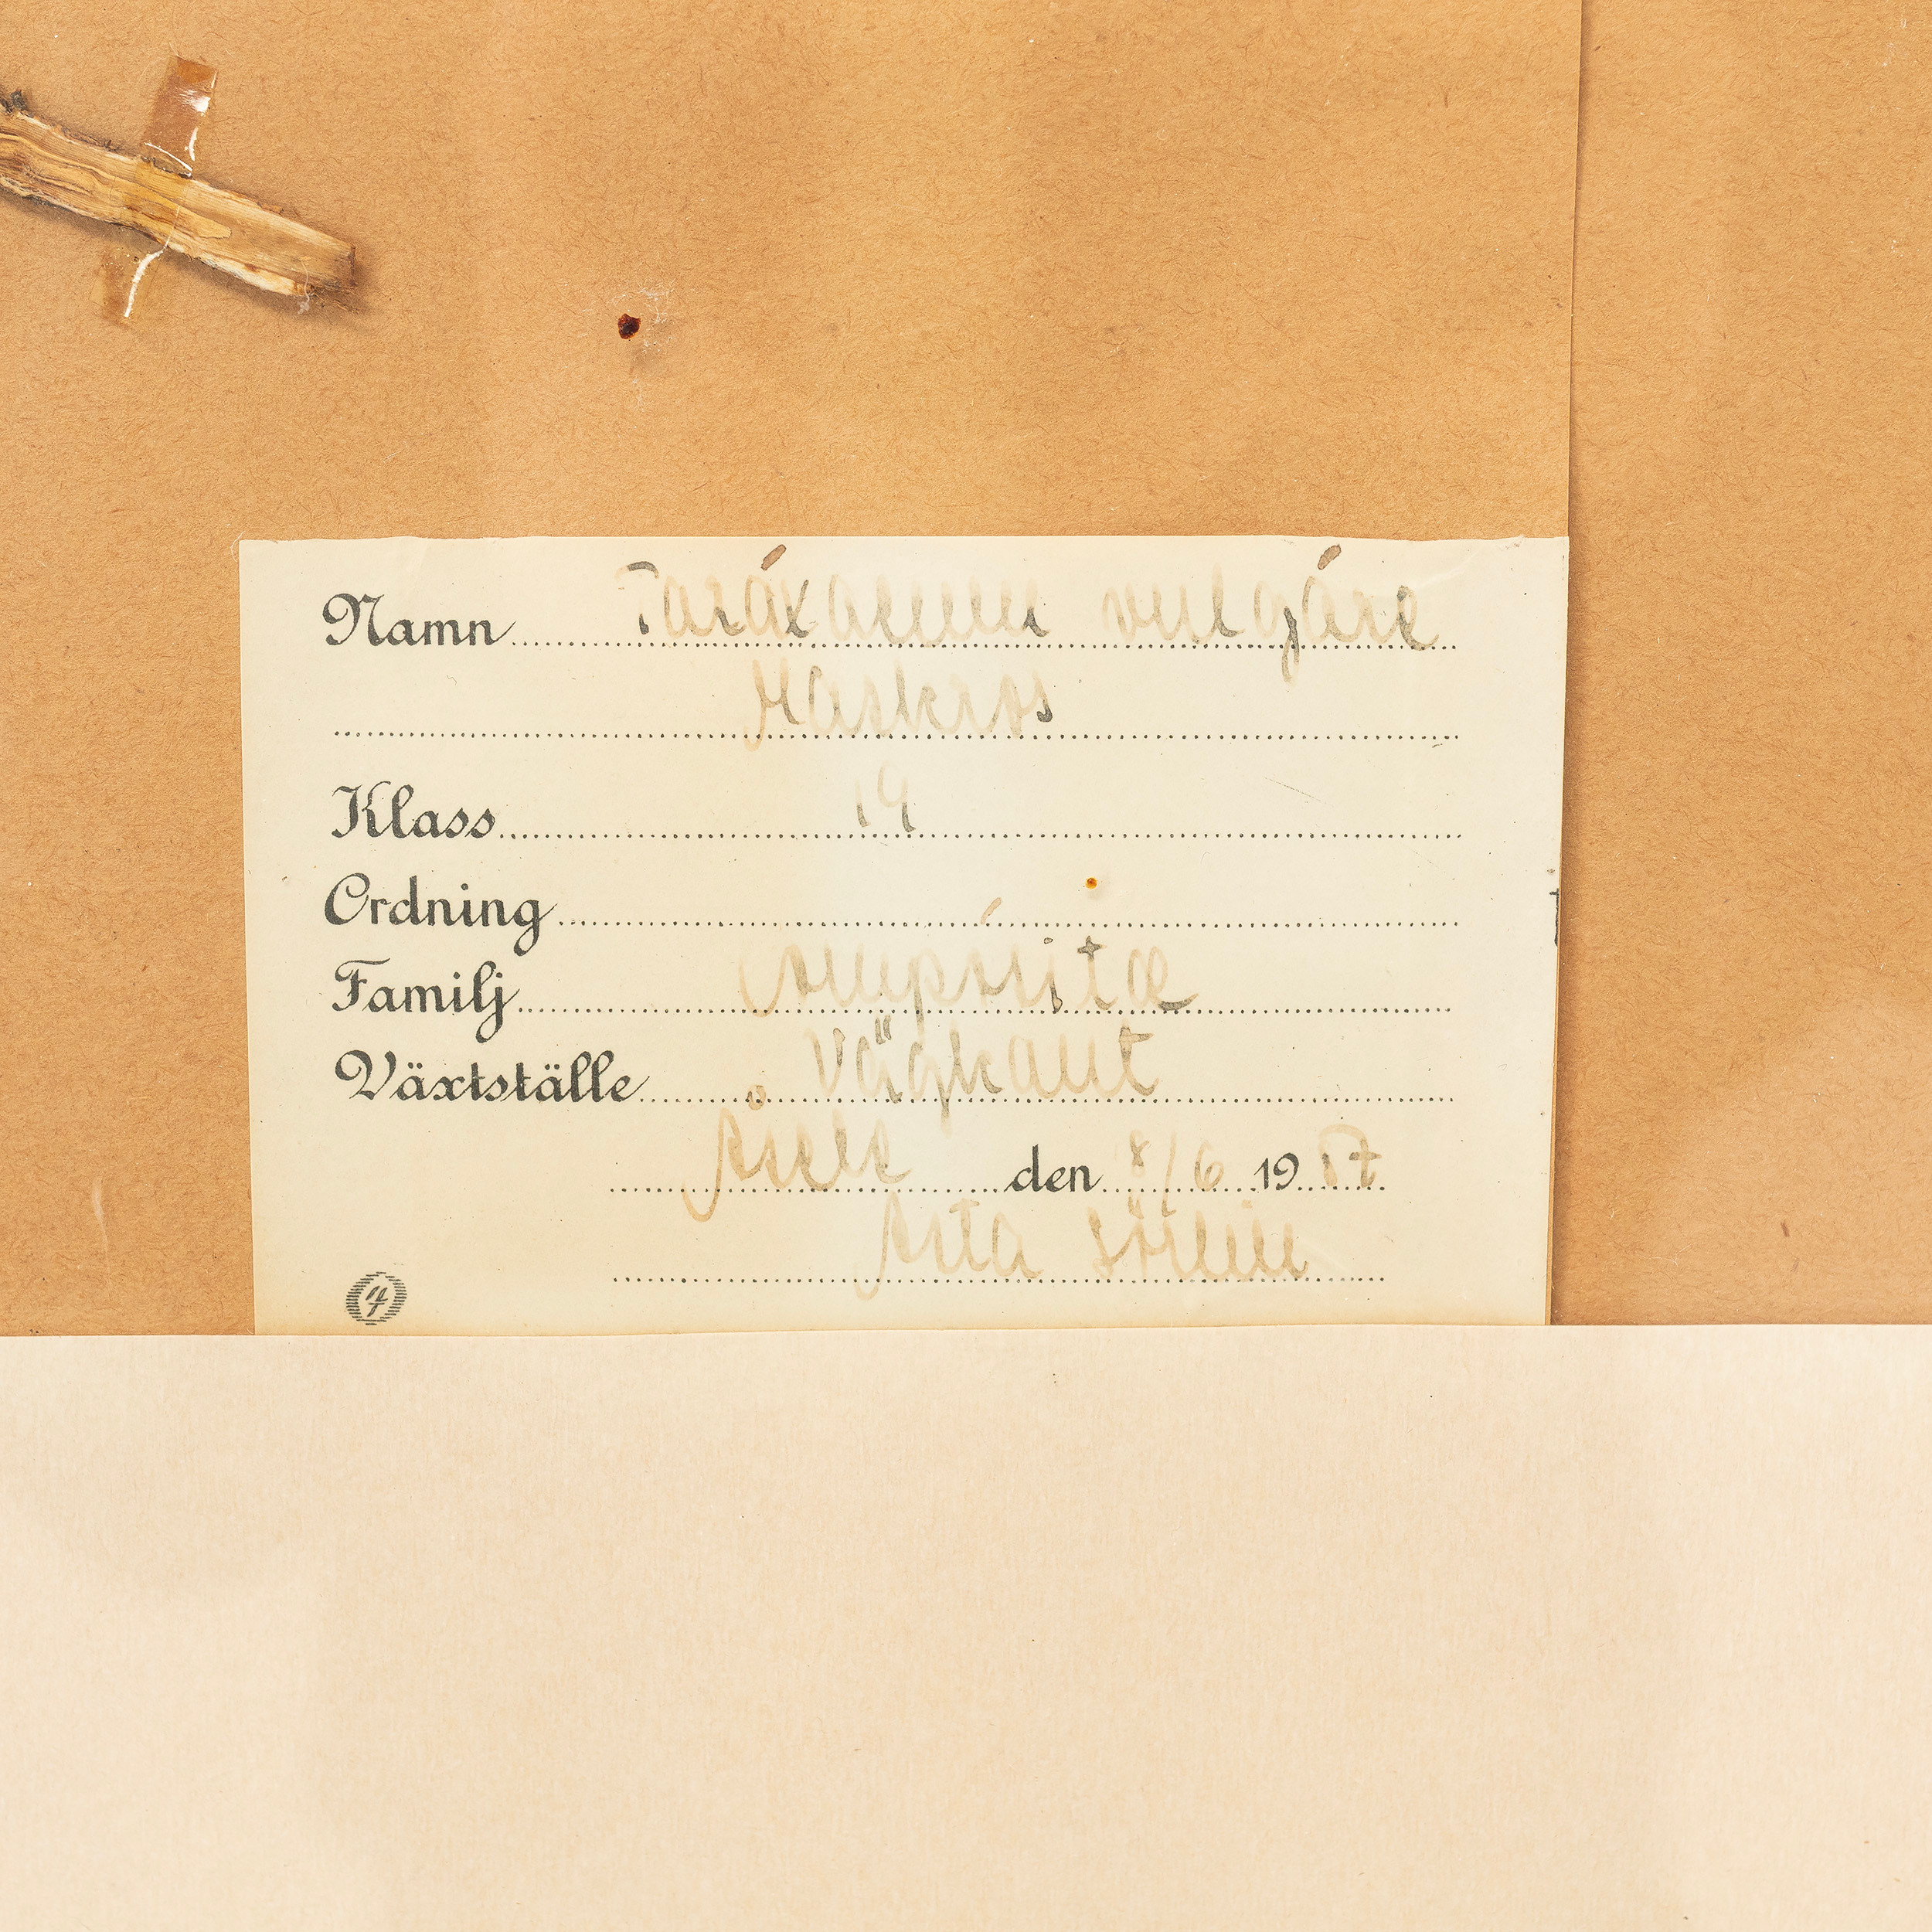 Namn Taráxacum vulgáre
Maskros
Klass 19
Ordning
Familj Compósitæ
Växtställe Vägkant
Åsele den 8/6 19 57
Asta
4